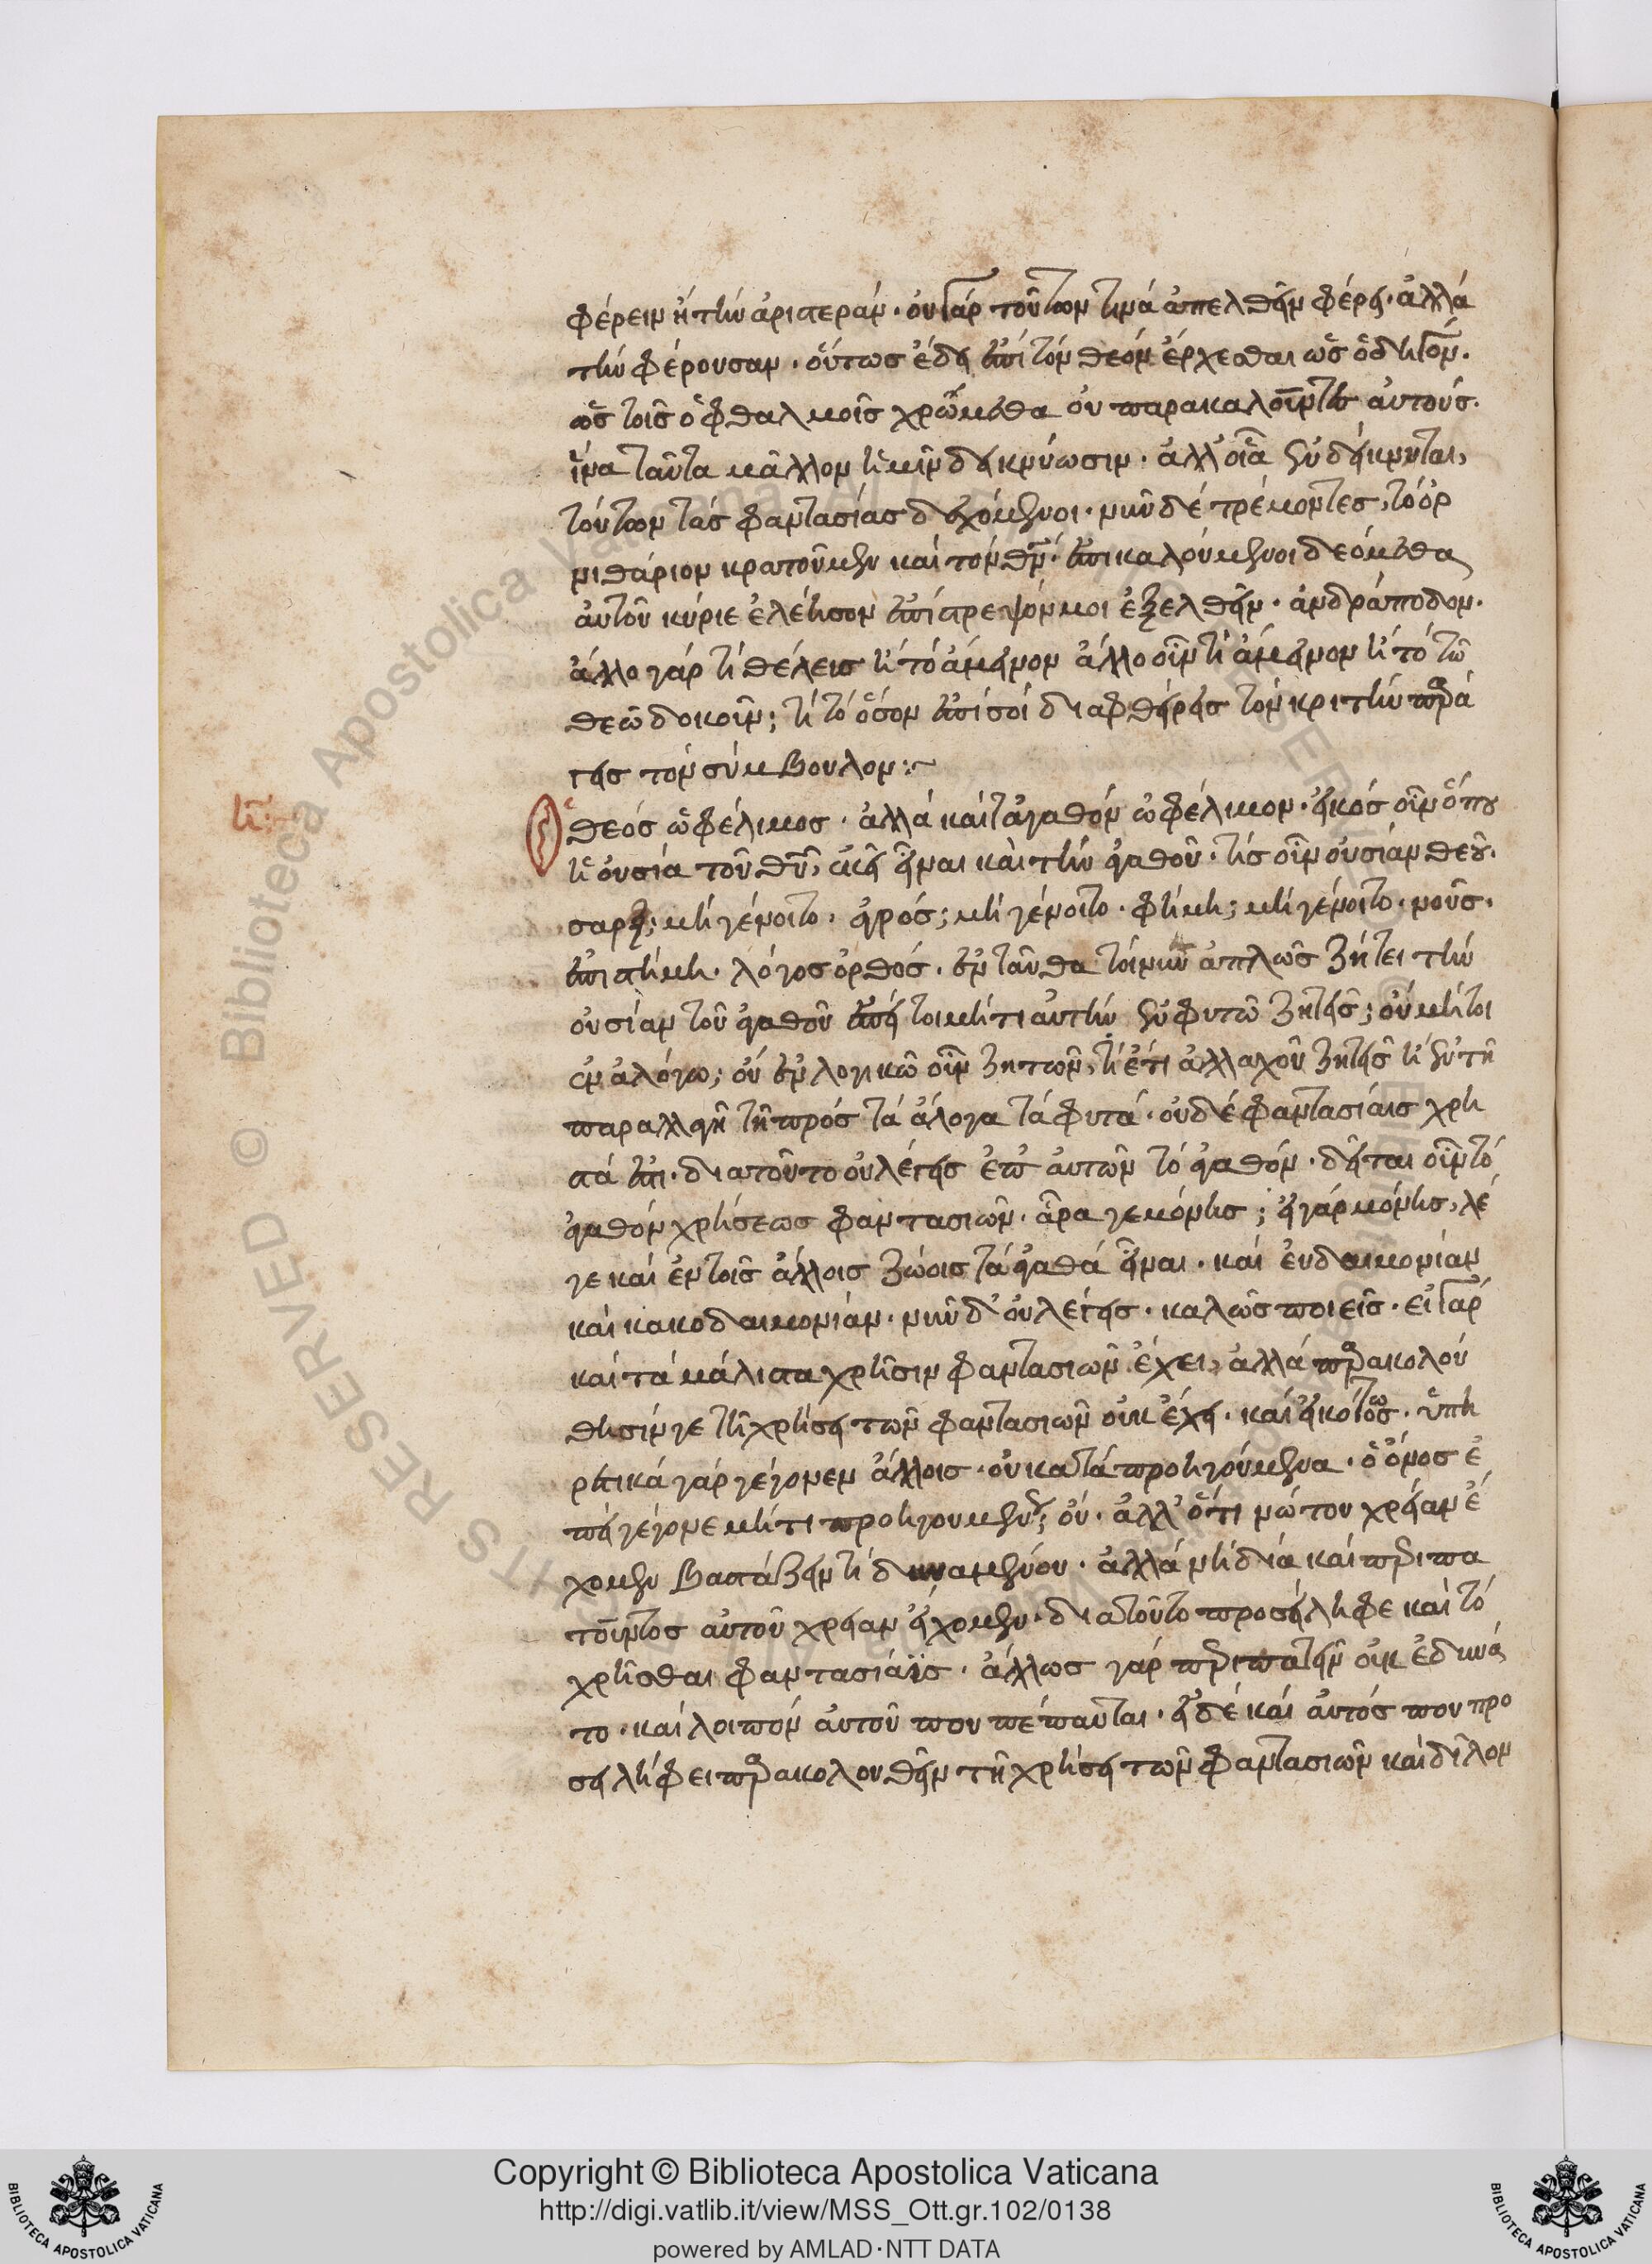 φέρειν ἢ τὴν ἀριστεράν· οὐ γὰρ τούτων τινὰ ἀπελθεῖν φέρει· ἀλλὰ
τὴν φέρουσαν· οὕτως ἔδει ἐπὶ τὸν θεὸν ἔρχεσθαι ὡς ὁδηγόν·
ὡς τοῖς ὀφθαλμοῖς χρώμεθα οὐ παρακαλοῦντες αὐτοὺς·
ἵνα ταῦτα μᾶλλον ἡμῖν δεικνύωσιν· ἀλλ' οἷα ἐνδείκνυται,
τούτων τὰς φαντασίας δεχόμενοι· νῦν δὲ τρέμοντες, τὸ ὀρ
νιθάριον κρατοῦμεν καὶ τὸν θν· ἐπικαλούμενοι δεόμεθα
αὐτοῦ κύριε ἐλέησον ἐπίτρεψόν μοι ἐξελθεῖν· ἀνδράποδον·
ἄλλο γάρ τι θέλεις ἢ τὸ ἄμεινον ἄλλο οὖν τι ἄμεινον ἢ τὸ τῶ
θεῶ δοκοῦν; τί τὸ ὅσον ἐπὶ σοὶ διαφθείρεις τὸν κριτὴν παρά
γεις τὸν σύμβουλον:~
η:
Ὁ θεὸς ὠφέλιμος· ἀλλὰ καὶ τἀγαθὸν ὠφέλιμον· εἰκὸς οὖν ὅπου
ἡ οὐσία τοῦ θυ, ἐκεῖ εἶναι καὶ τὴν ἀγαθοῦ· τίς οὖν οὐσίαν θεοῦ·
σαρξ; μὴ γένοιτο· ἀγρός; μὴ γένοιτο· φήμη; μὴ γένοιτο· νοῦς·
ἐπιστήμη· λόγος ὀρθός· ἐνταῦθα τοίνυν ἁπλῶς ζήτει τὴν
οὐσίαν τοῦ ἀγαθοῦ ἐπεί τοι μήτι αὐτὴν ἐν φυτῶ ζητεῖς; οὐ μήτοι
ἐν ἀλόγω; οὔ ἐν λογικῶ οὖν ζητῶν, τί ἔτι ἀλλαχοῦ ζητεῖς ἢ ἐν τῆ
παραλλαγῆ τῆ πρὸς τὰ ἄλογα τὰ φυτά· οὐδὲ φαντασίαις χρη
στά ἐστι· διατοῦτο οὐ λέγεις ἐπ' αὐτῶν τὸ ἀγαθόν· δεῖται οὖν τὸ
ἀγαθὸν χρήσεως φαντασιῶν· ἆρά γε μόνης; εἰ γὰρ μόνης, λέ
γε καὶ ἐν τοῖς ἄλλοις ζώοις τὰ ἀγαθὰ εἶναι· καὶ εὐδαιμονίαν
καὶ κακοδαιμονίαν· νῦν δ' οὐ λέγεις· καλῶς ποιεῖς· εἰ γὰρ
καὶ τὰ μάλιστα χρῆσιν φαντασιῶν ἔχει, ἀλλὰ παρακολού
θησίν γε τῆ χρήσει τῶν φαντασιῶν οὐκ ἔχει· καὶ εἰκότως· ὑπη
ρετικὰ γὰρ γέγονεν ἄλλοις· οὐκ αὐτὰ προηγούμενα· ὁ ὄνος ἐ
πεὶ γέγονε μήτι προηγουμένως; οὔ· ἀλλ' ὅτι νώτου χρείαν εἴ
χομεν βαστάζειν τι δυναμένου· ἀλλὰ νὴ δία καὶ περιπα
τοῦντος αὐτοῦ χρείαν εἴχομεν· διατοῦτο προσείληφε καὶ τὸ
χρῆσθαι φαντασίαις· ἄλλως γὰρ περιπατεῖν οὐκ ἐδύνα
το· καὶ λοιπὸν αὐτοῦ που πέπαυται· εἰ δὲ καὶ αὐτός που προ
σειλήφει παρακολουθεῖν τῆ χρήσει τῶν φαντασιῶν καὶ δῆλον
Copyright © Biblioteca Apostolica Vaticana
http://digi.vatlib.it/view/MSS_Ott.gr.102/0138
powered by AMLAD·NTT DATA